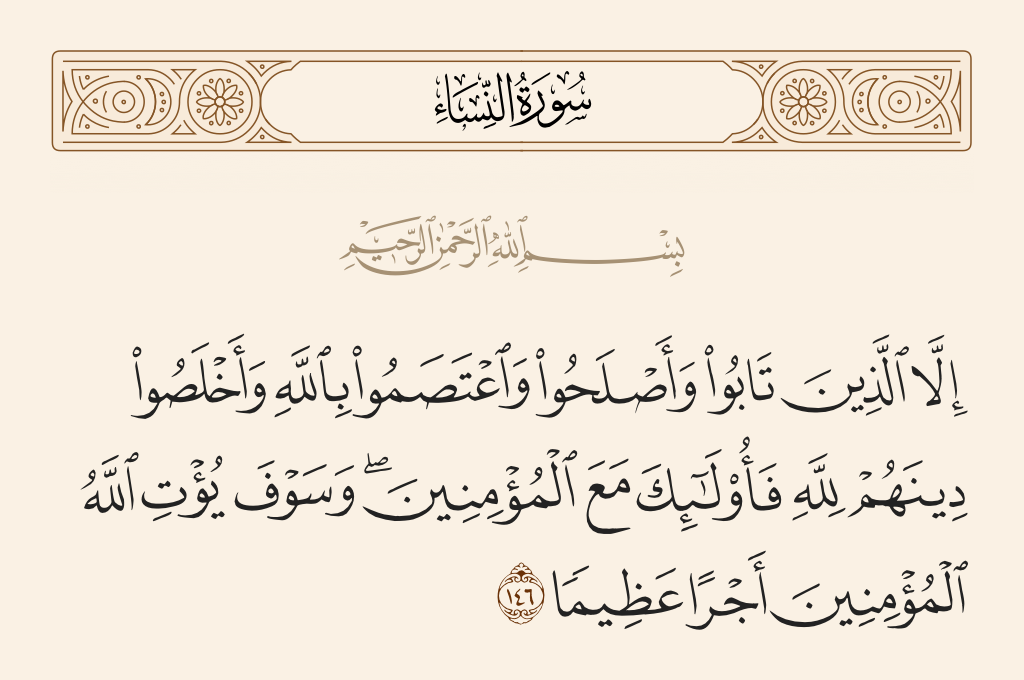 سُورَةُ النِّسَاءِ
بِسْمِ ٱللَّهِ ٱلرَّحْمَٰنِ ٱلرَّحِيمِ
إِلَّا ٱلَّذِينَ تَابُوا۟ وَأَصْلَحُوا۟ وَٱعْتَصَمُوا۟ بِٱللَّهِ وَأَخْلَصُوا۟
دِينَهُمْ لِلَّهِ فَأُو۟لَـٰٓئِكَ مَعَ ٱلْمُؤْمِنِينَ ۖ وَسَوْفَ يُؤْتِ ٱللَّهُ
ٱلْمُؤْمِنِينَ أَجْرًا عَظِيمًا ١٤٦